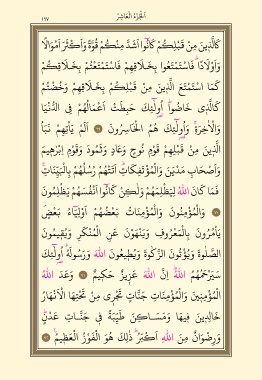 الجزء العاشر
١٩٧
كَالَّذِينَ مِنْ قَبْلِكُمْ كَانُوا أَشَدَّ مِنْكُمْ قُوَّةً وَأَكْثَرَ أَمْوَالًا
وَأَوْلَادًا فَاسْتَمْتَعُوا بِخَلَاقِهِمْ فَاسْتَمْتَعْتُمْ بِخَلَاقِكُمْ
كَمَا اسْتَمْتَعَ الَّذِينَ مِنْ قَبْلِكُمْ بِخَلَاقِهِمْ وَخُضْتُمْ
كَالَّذِي خَاضُوا أُولٰئِكَ حَبِطَتْ أَعْمَالُهُمْ فِي الدُّنْيَا
وَالْآخِرَةِ وَأُولٰئِكَ هُمُ الْخَاسِرُونَ ۝ أَلَمْ يَأْتِهِمْ نَبَأُ
الَّذِينَ مِنْ قَبْلِهِمْ قَوْمِ نُوحٍ وَعَادٍ وَثَمُودَ وَقَوْمِ إِبْرٰهِيمَ
وَأَصْحَابِ مَدْيَنَ وَالْمُؤْتَفِكَاتِ أَتَتْهُمْ رُسُلُهُمْ بِالْبَيِّنَاتِ
فَمَا كَانَ اللهُ لِيَظْلِمَهُمْ وَلٰكِنْ كَانُوا أَنْفُسَهُمْ يَظْلِمُونَ
۝ وَالْمُؤْمِنُونَ وَالْمُؤْمِنَاتُ بَعْضُهُمْ أَوْلِيَاءُ بَعْضٍ
يَأْمُرُونَ بِالْمَعْرُوفِ وَيَنْهَوْنَ عَنِ الْمُنْكَرِ وَيُقِيمُونَ
الصَّلٰوةَ وَيُؤْتُونَ الزَّكٰوةَ وَيُطِيعُونَ اللهَ وَرَسُولَهُ أُولٰئِكَ
سَيَرْحَمُهُمُ اللهُ إِنَّ اللهَ عَزِيزٌ حَكِيمٌ ۝ وَعَدَ اللهُ
الْمُؤْمِنِينَ وَالْمُؤْمِنَاتِ جَنَّاتٍ تَجْرِي مِنْ تَحْتِهَا الْأَنْهَارُ
خَالِدِينَ فِيهَا وَمَسَاكِنَ طَيِّبَةً فِي جَنَّاتِ عَدْنٍ
وَرِضْوَانٌ مِنَ اللهِ أَكْبَرُ ذٰلِكَ هُوَ الْفَوْزُ الْعَظِيمُ ۝